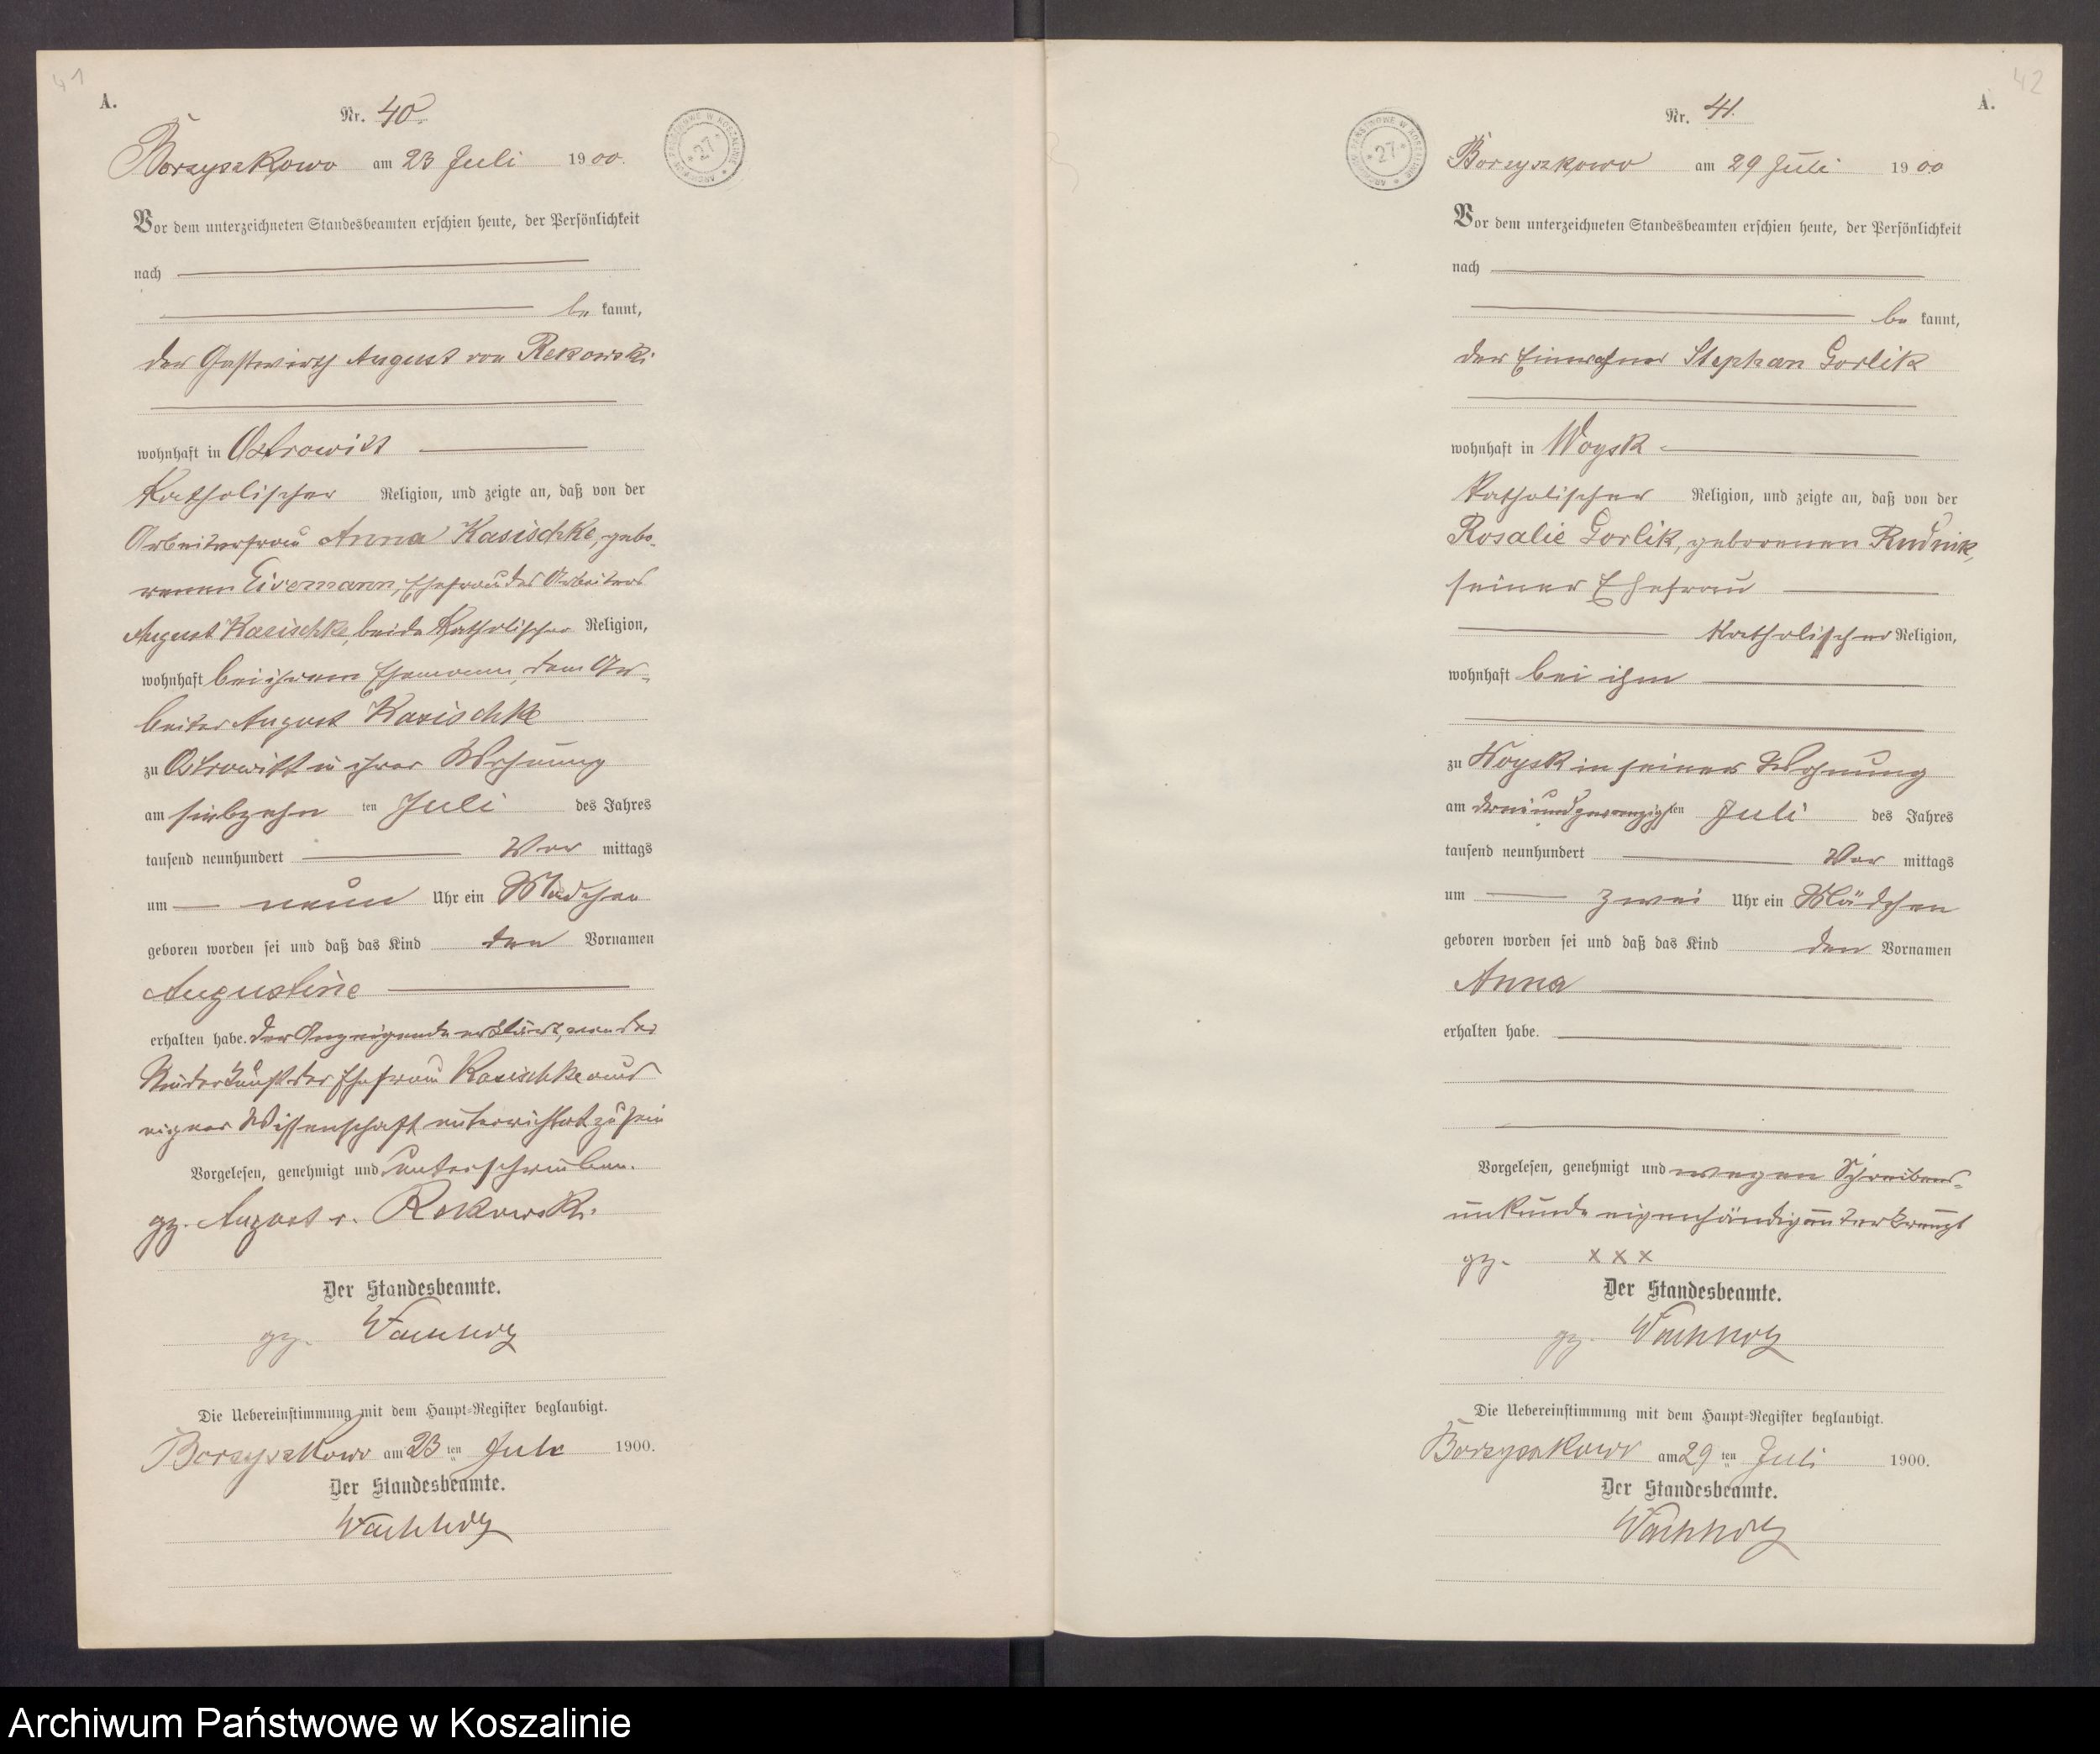 41
A.
Nr. 40.
Borzyszkowo am 23 Juli 1900.
ARCHIWUM PAŃSTWOWE W KOSZALINIE * 27 *
Vor dem unterzeichneten Standesbeamten erschien heute, der Persönlichkeit
nach
be kannt,
der Gastwirth August von Rekowski
wohnhaft in Ostrowitt
Katholischer Religion, und zeigte an, daß von der
Arbeiterfrau Anna Kasischke, gebo-
renen Eisemann, Ehefrau des Arbeiters
August Kasischke, beide Katholischer Religion,
wohnhaft bei ihrem Ehemann, dem Ar-
beiter August Kasischke
zu Ostrowitt in ihrer Wohnung
am siebzehn ten Juli des Jahres
tausend neunhundert Vor mittags
um neun Uhr ein Mädchen
geboren worden sei und daß das Kind den Vornamen
Augustine
erhalten habe. Der Anzeigende erklärt, von der
Niederkunft der Ehefrau Kasischke aus
eigner Wissenschaft unterrichtet zu sein
Vorgelesen, genehmigt und unterschrieben.
gz. August v. Rekowski.
Der Standesbeamte.
gz. Wachholz
Die Uebereinstimmung mit dem Haupt-Register beglaubigt.
Borzyszkowo am 23 ten Juli 1900.
Der Standesbeamte.
Wachholz
42
A.
Nr. 41.
Borzyszkowo am 29 Juli 1900
ARCHIWUM PAŃSTWOWE W KOSZALINIE * 27 *
Vor dem unterzeichneten Standesbeamten erschien heute, der Persönlichkeit
nach
be kannt,
der Einwohner Stephan Gorlik
wohnhaft in Woysk
Katholischer Religion, und zeigte an, daß von der
Rosalie Gorlik, geborenen Rudnik,
seiner Ehefrau
Katholischer Religion,
wohnhaft bei ihm
zu Woysk in seiner Wohnung
am dreiundzwanzigsten Juli des Jahres
tausend neunhundert Vor mittags
um zwei Uhr ein Mädchen
geboren worden sei und daß das Kind den Vornamen
Anna
erhalten habe.
Vorgelesen, genehmigt und wegen Schreibens-
unkunde eigenhändig unterkreuzt
gz. x x x
Der Standesbeamte.
gz. Wachholz
Die Uebereinstimmung mit dem Haupt-Register beglaubigt.
Borzyszkowo am 29 ten Juli 1900.
Der Standesbeamte.
Wachholz
Archiwum Państwowe w Koszalinie